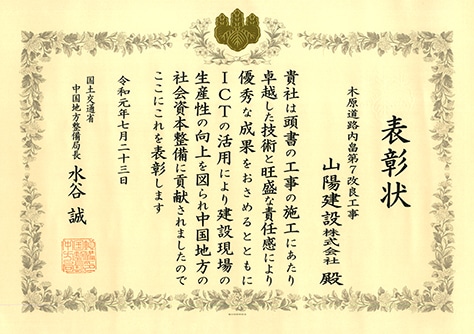 表彰状
木原道路内畠第7改良工事
山陽建設株式会社 殿
貴社は頭書の工事の施工にあたり
卓越した技術と旺盛な責任感により
優秀な成果をおさめるとともに
ICTの活用により建設現場の
生産性の向上を図られ中国地方の
社会資本整備に貢献されましたので
ここにこれを表彰します
令和元年七月二十三日
国土交通省
中国地方整備局長 水谷 誠